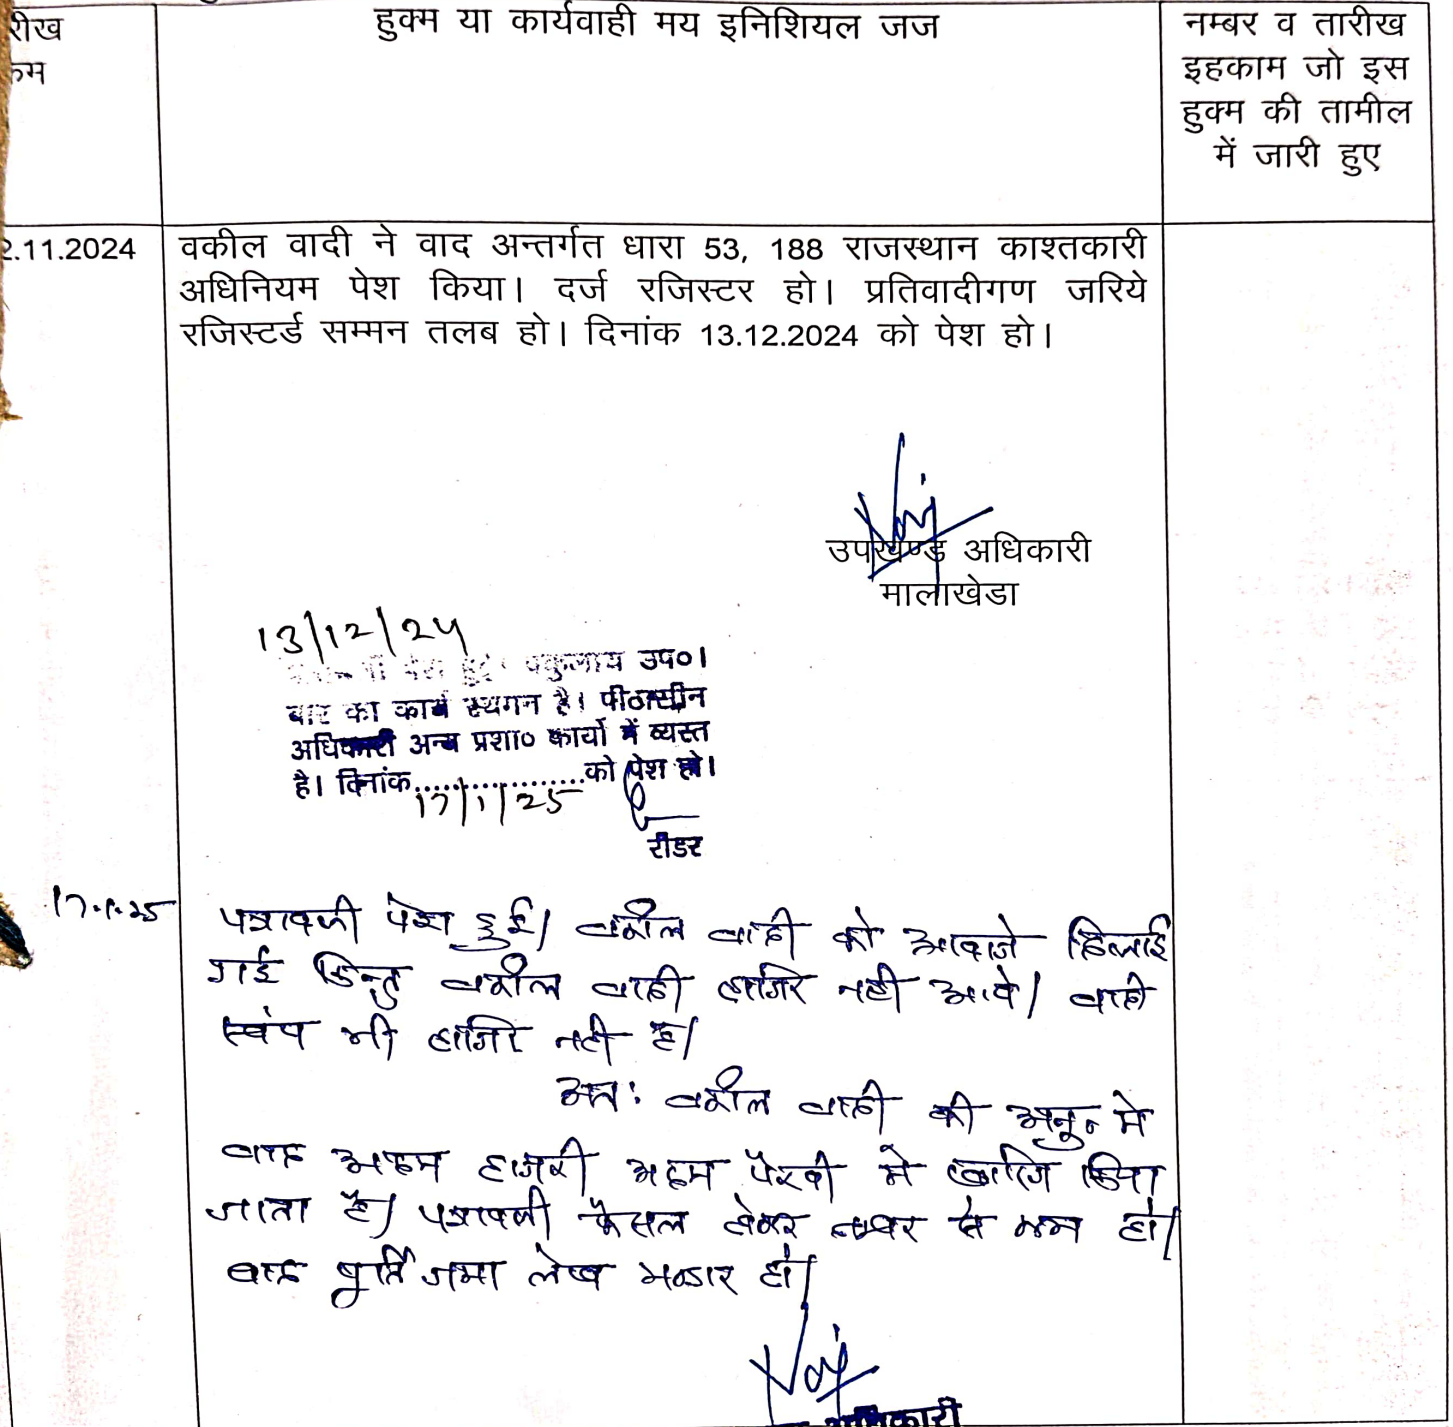 रीख
हुक्म या कार्यवाही मय इनिशियल जज
नम्बर व तारीख
इहकाम जो इस
हुक्म की तामील
में जारी हुए
2.11.2024
वकील वादी ने वाद अन्तर्गत धारा 53, 188 राजस्थान काश्तकारी
अधिनियम पेश किया। दर्ज रजिस्टर हो। प्रतिवादीगण जरिये
रजिस्टर्ड सम्मन तलब हो। दिनांक 13.12.2024 को पेश हो।
उपखण्ड अधिकारी
मालाखेडा
13/12/24
पेश हुई। वकुलाय उप०।
बार का कार्य स्थगन है। पीठासीन
अधिकारी अन्य प्रशा० कार्यो में व्यस्त
है। दिनांक.................को पेश हो।
17/1/25
रीडर
17.1.25
पत्रावली पेश हुई। वकील वादी को आवाजे दिलाई
गई किन्तु वकील वादी हाजिर नही आये। वादी
स्वंय भी हाजिर नही है।
अतः वकील वादी की अनु० मे
वाद अदम हाजरी अदम पैरवी मे खारिज किया
जाता है। पत्रावली फैसल होकर नम्बर से कम हो।
बाद पूर्ति जमा लेख भण्डार हो।
अधिकारी